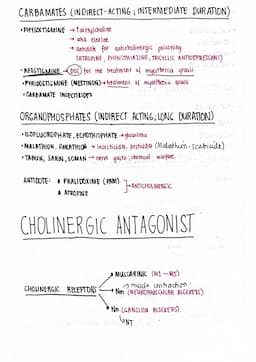 CARBAMATES (INDIRECT-ACTING; INTERMEDIATE DURATION)
• PHYSOSTIGMINE → ↑ acetylcholine
→ aka eserine
→ antidote for anticholinergic poisoning
(ATROPINE, PHENOTHIAZINE, TRICYCLIC ANTIDEPRESSANT)
• NEOSTIGMINE → DOC for the treatment of myasthenia gravis
• PYRIDOSTIGMINE (MESTINON) → treatment of myasthenia gravis
• CARBAMATE INSECTICIDES
ORGANOPHOSPHATES (INDIRECT ACTING; LONG DURATION)
• ISOFLUOROPHATE, ECHOTHIOPHATE → glaucoma
• MALATHION, PARATHION → insecticides, pesticides (Malathion-scabicide)
• TABUN, SARIN, SOMAN → nerve gases, chemical warfare
ANTIDOTE: • PRALIDOXIME (PAM)
• ATROPINE
→ ANTICHOLINERGIC
CHOLINERGIC ANTAGONIST
MUSCARINIC (M1 - M5)
muscle contraction
CHOLINERGIC RECEPTORS
Nm (NEUROMUSCULAR BLOCKERS)
Nn (GANGLION BLOCKERS)
NT